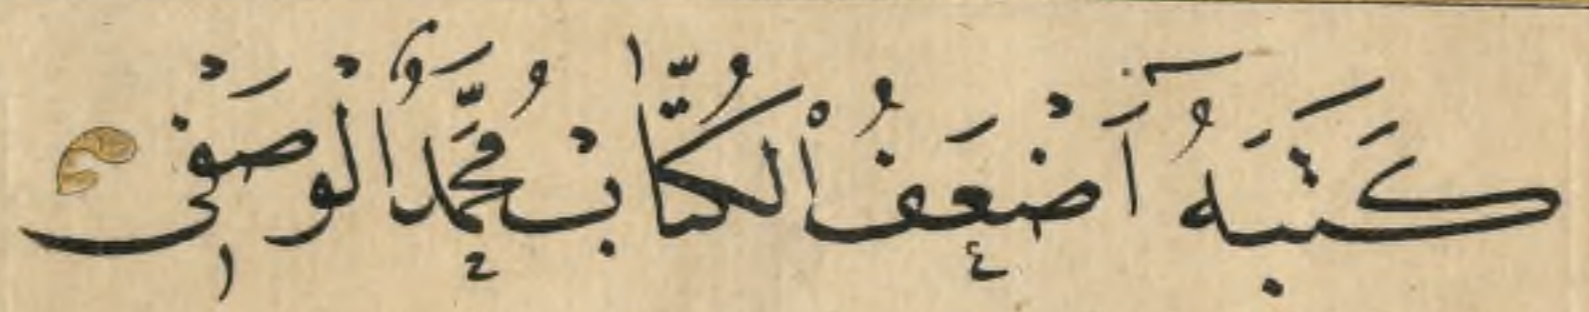 كَتَبَهُ أَضْعَفُ الْكُتَّابْ مُحَمَّدُ الْوَصْفِى